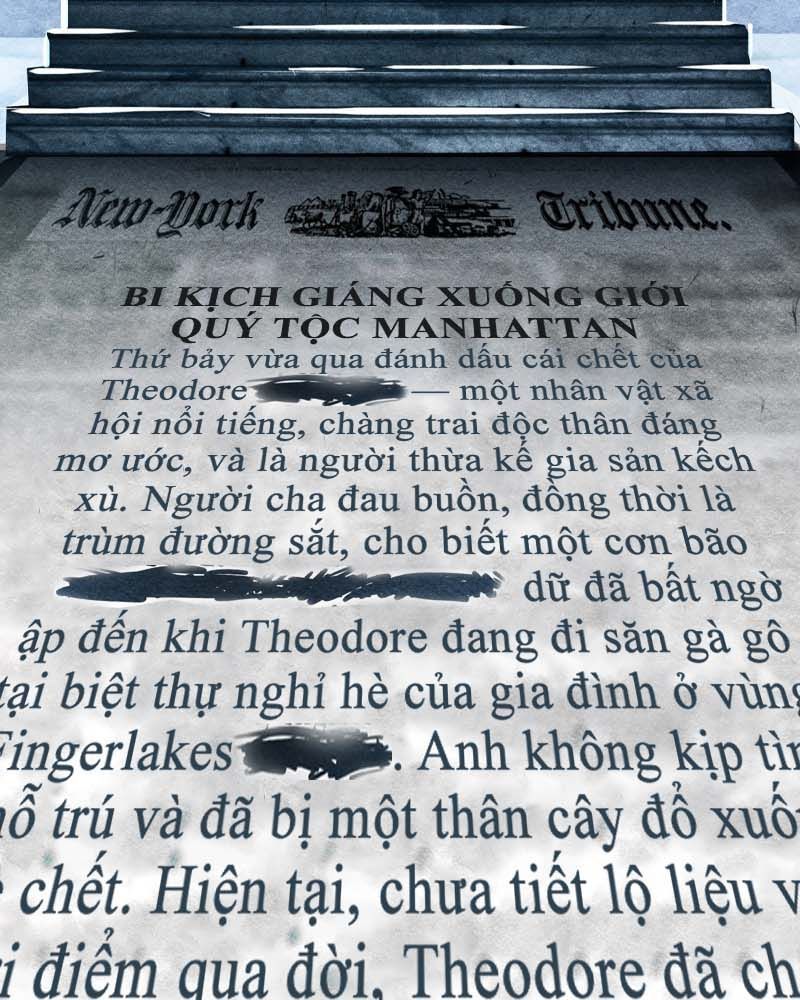 New-York Tribune.
BI KỊCH GIÁNG XUỐNG GIỚI
QUÝ TỘC MANHATTAN
Thứ bảy vừa qua đánh dấu cái chết của
Theodore — một nhân vật xã
hội nổi tiếng, chàng trai độc thân đáng
mơ ước, và là người thừa kế gia sản kếch
xù. Người cha đau buồn, đồng thời là
trùm đường sắt, cho biết một cơn bão
dữ đã bất ngờ
ập đến khi Theodore đang đi săn gà gô
tại biệt thự nghỉ hè của gia đình ở vùng
Fingerlakes . Anh không kịp
trú và đã bị một thân cây đổ
chết. Hiện tại, chưa tiết lộ liệu
điểm qua đời, Theodore đã